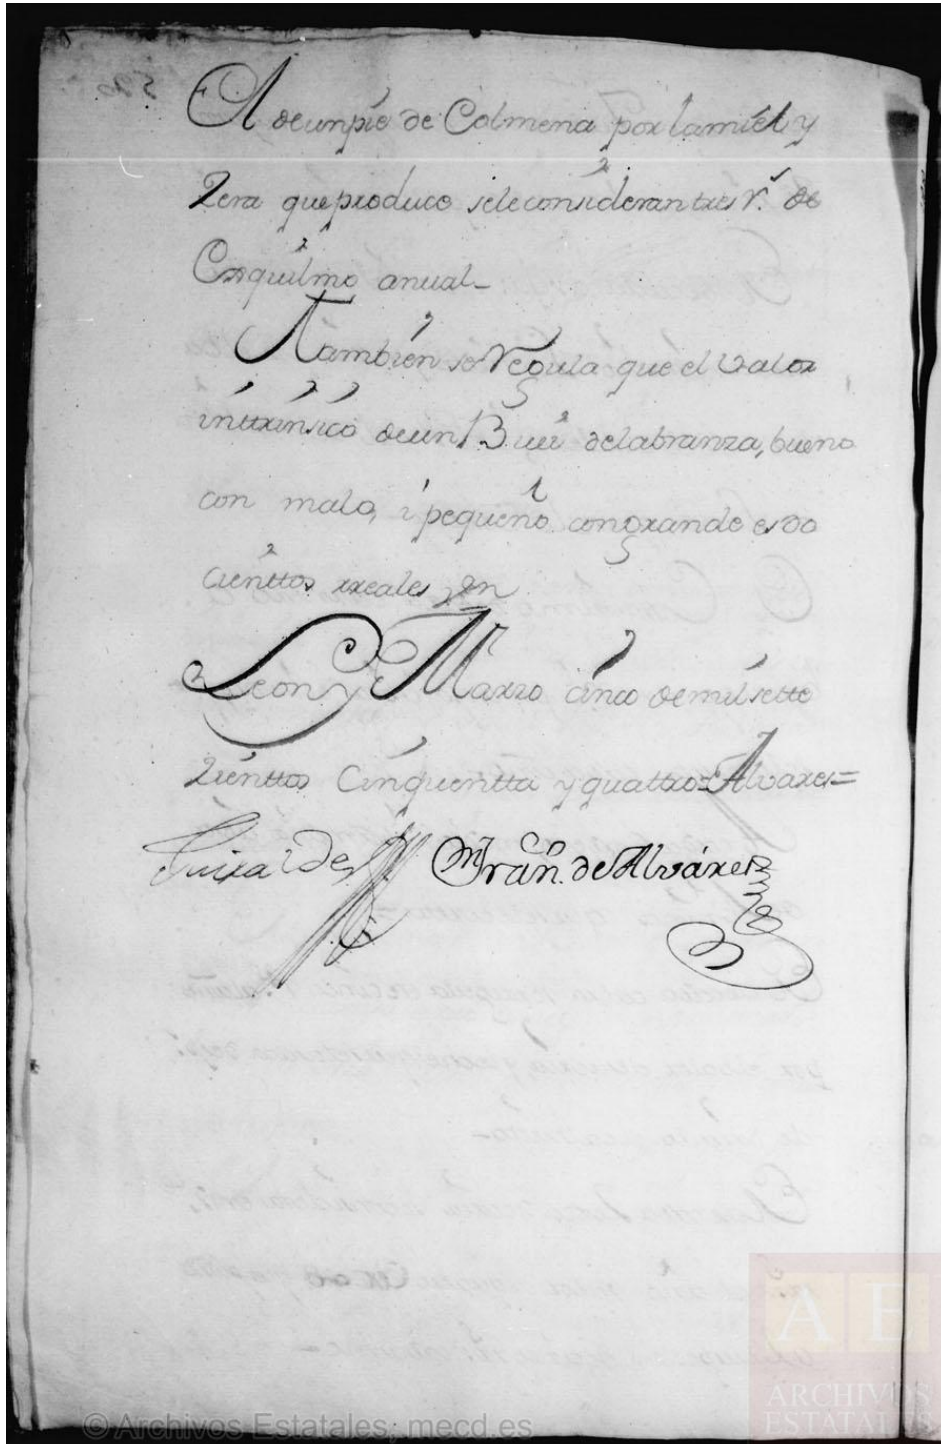 A de un pie de Colmena por la miel, y
Zera que produce se le consideran tres r.s de
Esquilmo anual_
Tambien se Regula que el valor
inttrinsico de un Buei de labranza, bueno
con malo, i pequeño con grande es do
cienttos rreales
Leon y Marzo cinco de mil sette
Zienttos Cinquentta y quattro= Alvarez=
Fran. de Alvárez
© Archivos Estatales, mecd.es
AE
ARCHIVOS
ESTATALES